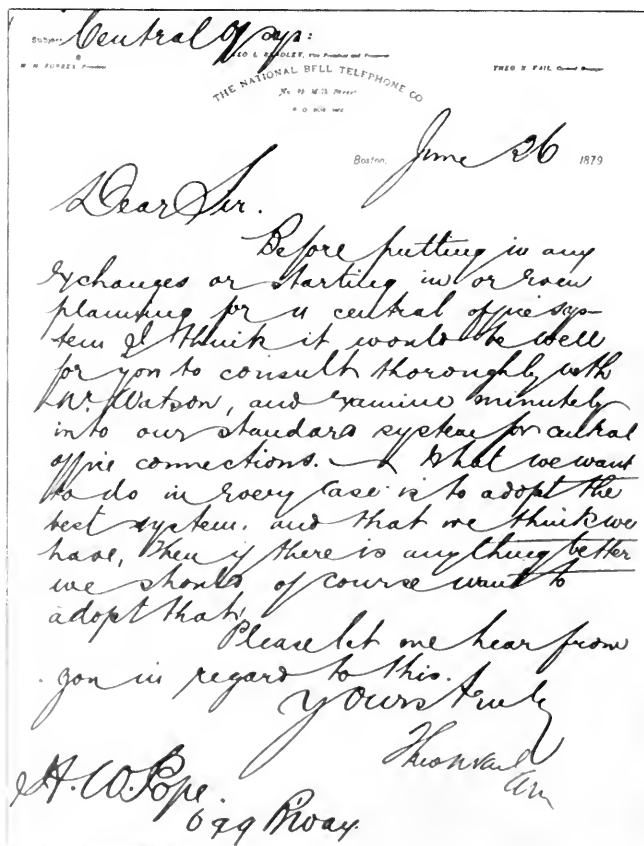 Subject Central Of sys:
W. H. FORBES, President
GEO L. BRADLEY, Vice President and Treasurer
THEO N VAIL, General Manager
THE NATIONAL BELL TELEPHONE CO
No. 95 Milk Street
P. O. BOX
Boston, June 26 1879
Dear Sir.
Before putting in any
exchanges or starting in or even
planning for a central office sys-
tem I think it would be well
for you to consult thoroughly with
Mr. Watson, and examine minutely
into our standard system for central
office connections. – What we want
to do in every case is to adopt the
best system. and that we think we
have, then if there is anything better
we should of course want to
adopt that.
Please let me hear from
you in regard to this.
Yours truly
Theo N Vail
GM
H. W. Pope.
699 B'way.